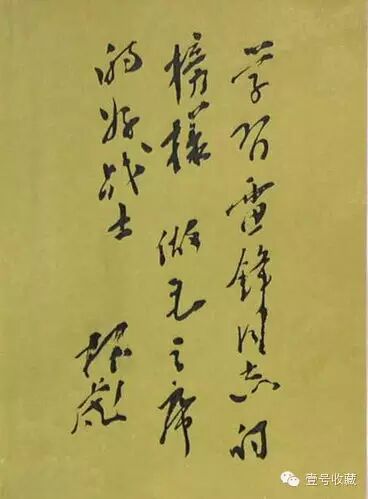 学习雷锋同志的
榜样 做毛主席
的好战士
林彪
壹号收藏